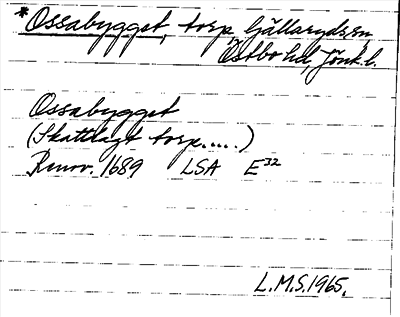 *Ossabygget, torp, Gällaryds sn,
Östbo hd, Jönk.l.
Ossabygget
(Skattlagt torp.....)
Renov. 1689 LSA E³²
L.M.S.1965.